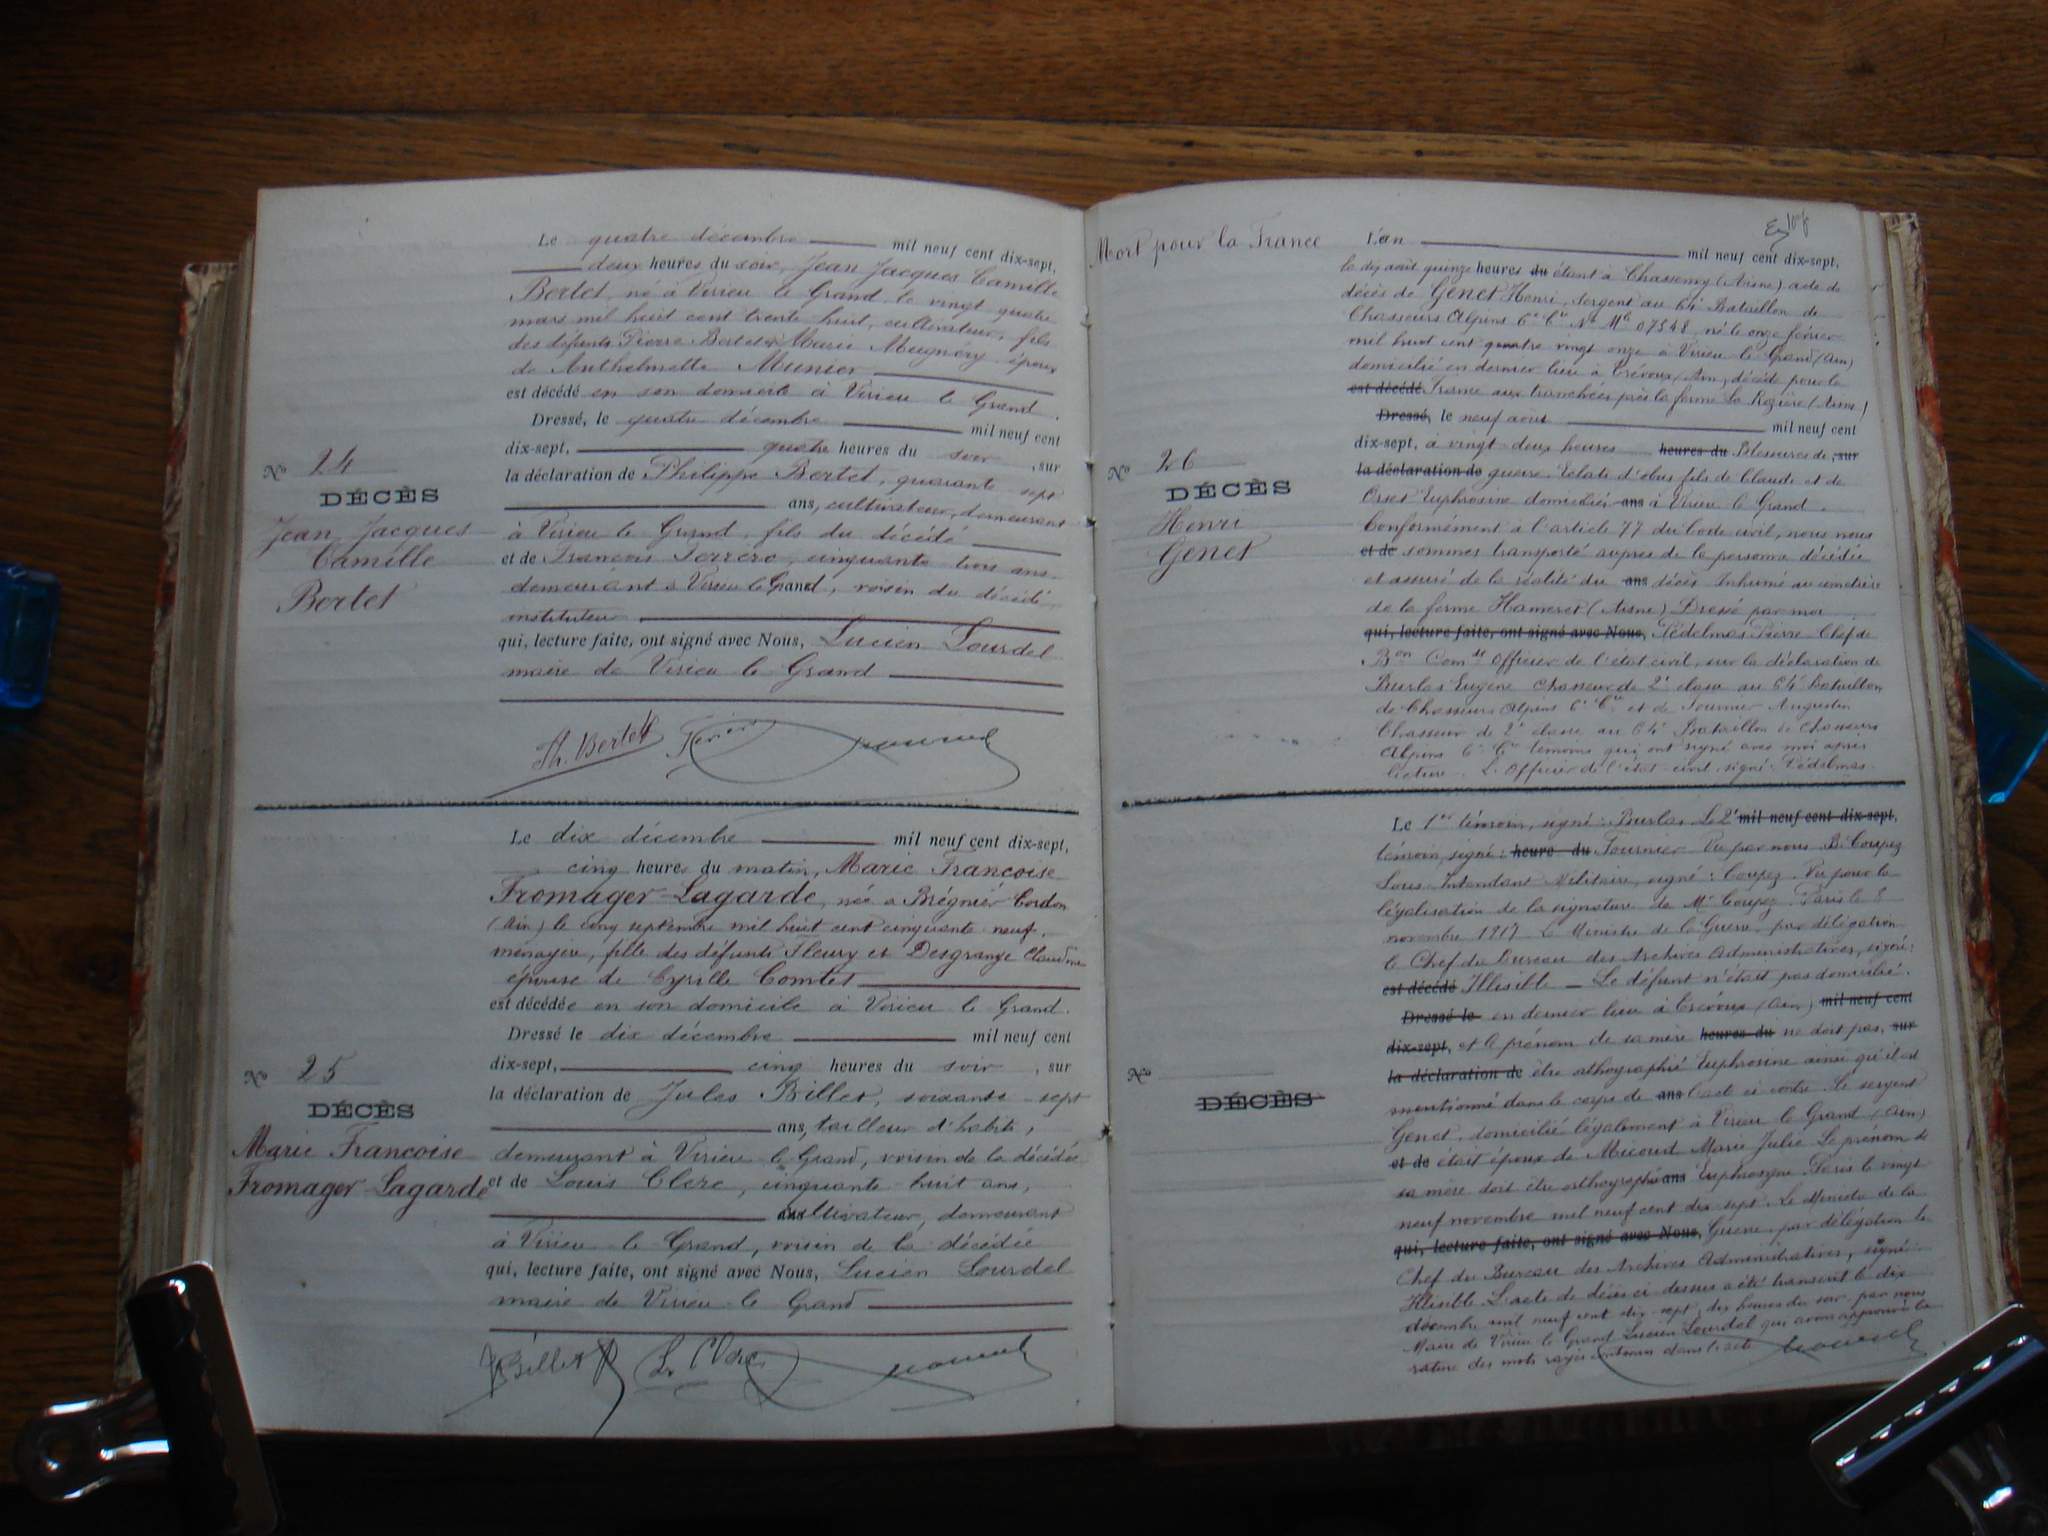 Le quatre décembre mil neuf cent dix-sept,
deux heures du soir, Jean Jacques Camille
Bertet, né à Virieu le Grand le vingt quatre
mars mil huit cent trente huit, cultivateur, fils
des défunts Pierre Bertet et Marie Mugnéry époux
de Anthelmette Munier
est décédé en son domicile à Virieu le Grand.
Dressé, le quatre décembre mil neuf cent
dix-sept, quatre heures du soir, sur
la déclaration de Philippe Bertet, quarante sept
ans, cultivateur, demeurant
à Virieu le Grand, fils du décédé
et de François cinquante trois ans
demeurant à Virieu le Grand, voisin du décédé,
instituteur
qui, lecture faite, ont signé avec Nous, Lucien Lourdel
maire de Virieu le Grand
Ph. Bertet
No 24
DÉCÈS
Jean Jacques
Camille
Bertet
Le dix décembre mil neuf cent dix-sept,
cinq heures du matin, Marie Françoise
Fromager-Lagarde, née à Brégnier Cordon
(Ain) le cinq septembre mil huit cent cinquante neuf,
ménagère, fille des défunts Fleury et Desgrange Claudine
épouse de Cyrille Comtet
est décédée en son domicile à Virieu le Grand.
Dressé le dix décembre mil neuf cent
dix-sept, cinq heures du soir, sur
la déclaration de Jules Billet, soixante-sept
ans, tailleur d'habits,
demeurant à Virieu le Grand, voisin de la décédée
et de Louis Clerc, cinquante-huit ans,
ans cultivateur, demeurant
à Virieu le Grand, voisin de la décédée
qui, lecture faite, ont signé avec Nous, Lucien Lourdel
maire de Virieu le Grand
J Billet L. Clerc
No 25
DÉCÈS
Marie Françoise
Fromager-Lagarde
Mort pour la France
L'an mil neuf cent dix-sept,
le dix août quinze heures du étant à Chassemy (Aisne) acte de
décès de Genet Henri, Sergent au 64e Bataillon de
Chasseurs Alpins 6e Cie No Mle 07548, né le onze février
mil huit cent quatre vingt onze à Virieu le Grand (Ain)
domicilié en dernier lieu à Trévoux (Ain) décédé pour la
est décédé France aux tranchées près la ferme La Rozière (Aisne)
Dressé, le neuf août mil neuf cent
dix-sept, à vingt deux heures heures du Blessures de, sur
la déclaration de guerre. Eclats d'obus fils de Claude et de
Orset Euphrosine domiciliés ans à Virieu le Grand.
Conformément à l'article 77 du Code civil, nous nous
et de sommes transporté auprès de la personne décédée
et assuré de la réalité du ans décès. Inhumé au cimetière
de la ferme Hameret (Aisne) Dressé par moi
qui, lecture faite, ont signé avec Nous, Pédelmas Pierre Chef de
Bon Comdt Officier de l'état civil, sur la déclaration de
Burlas Eugène Chasseur de 2e classe au 64e Bataillon
de Chasseurs Alpins 6e Cie et de Fournier Augustin
Chasseur de 2e classe au 64e Bataillon de Chasseurs
Alpins 6e Cie témoins qui ont signé avec moi après
lecture. L'Officier de l'état civil signé: Pédelmas
No 26
DÉCÈS
Henri
Genet
Le 1er témoin, signé: Burlas. Le 2e mil neuf cent dix-sept,
témoin, signé: heure du Fournier. Vu par nous B. Coupez
Sous Intendant Militaire, signé: Coupez. Vu pour la
légalisation de la signature de Mr Coupez. Paris le 8
novembre 1917. Le Ministre de la Guerre, par délégation
le Chef du Bureau des Archives Administratives, signé:
est décédé Illisible — Le défunt n'était pas domicilié
Dressé le en dernier lieu à Trévoux (Ain) mil neuf cent
dix-sept, et le prénom de sa mère heures du ne doit pas, sur
la déclaration de être orthographié Euphrosine ainsi qu'il est
mentionné dans le corps de ans l'acte ci contre. Le sergent
Genet, domicilié légalement à Virieu le Grand (Ain)
et de était époux de Micoud Marie Julie. Le prénom de
sa mère doit être orthographié ans Euphrosyne. Paris le vingt
neuf novembre mil neuf cent dix sept. Le Ministre de la
qui, lecture faite, ont signé avec Nous, Guerre, par délégation le
Chef du Bureau des Archives Administratives, signé:
Illisible. L'acte de décès ci dessus a été transcrit le dix
décembre mil neuf cent dix-sept, dix heures du soir, par nous
Maire de Virieu le Grand Lucien Lourdel qui avons approuvé la
rature des mots rayés contenus dans l'acte
No
DÉCÈS